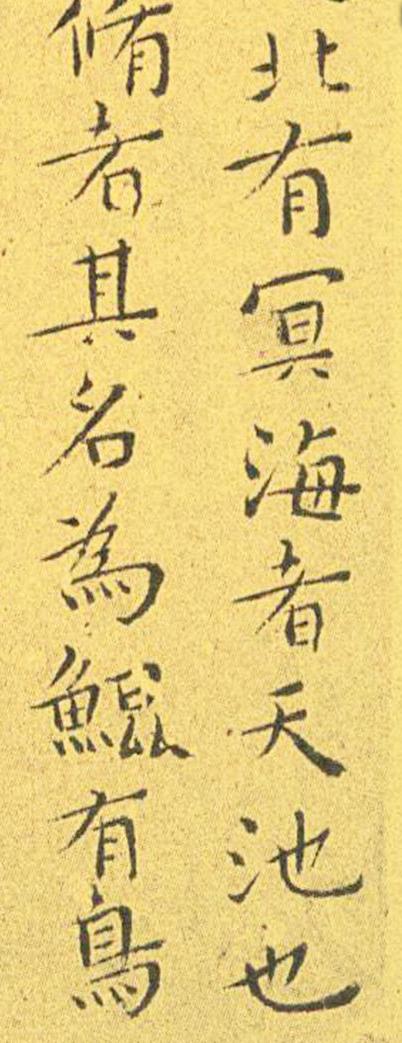 北有冥海者天池也
脩者其名為鯤有鳥